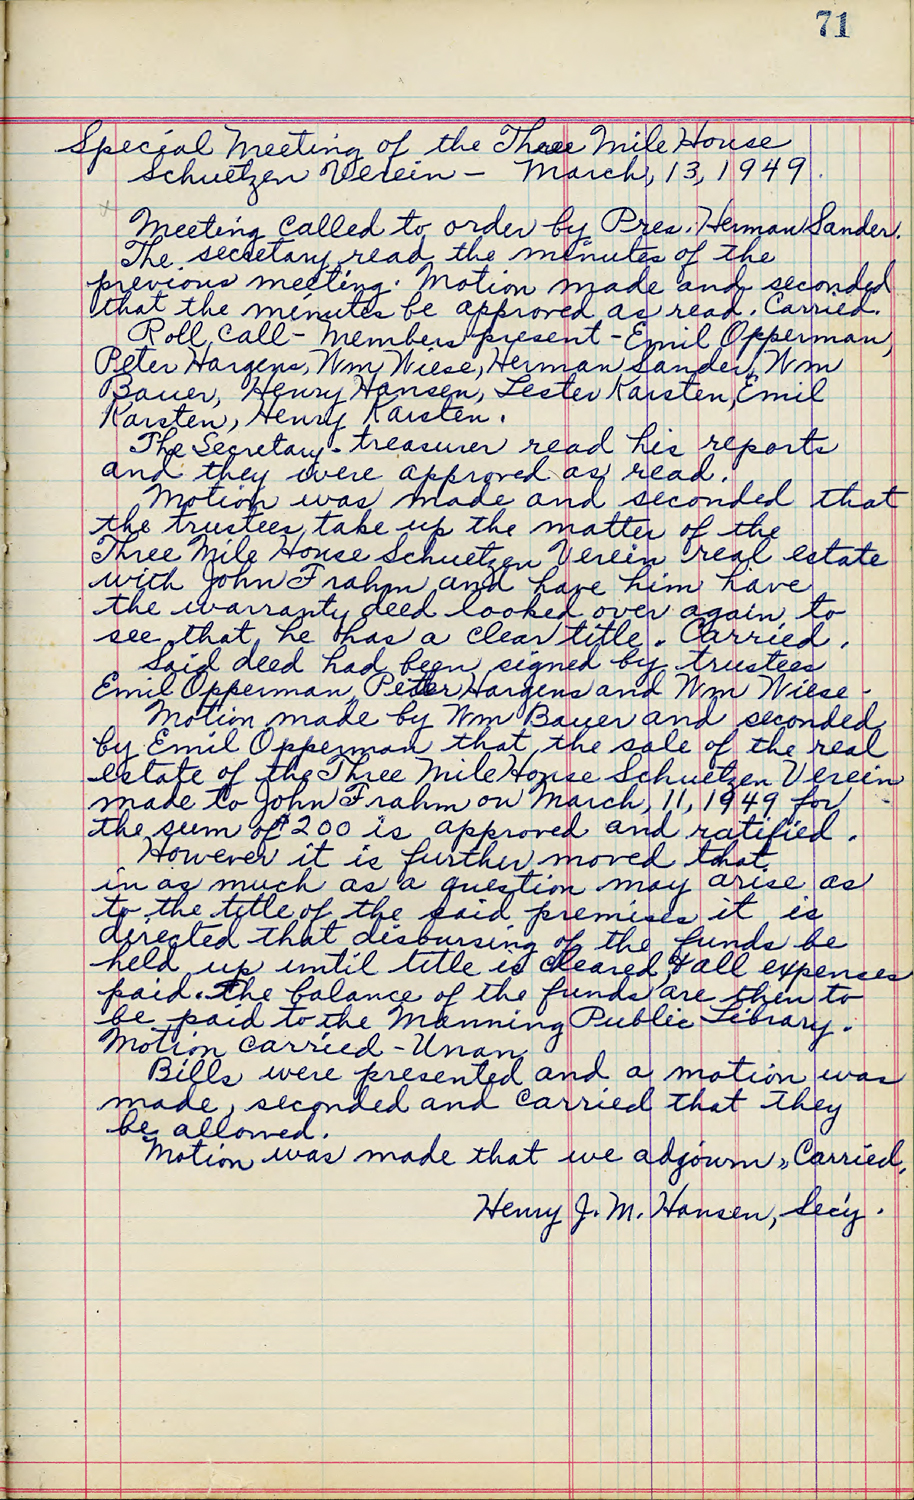 71
Special Meeting of the Three Mile House
Schuetzen Verein - March, 13, 1949.
Meeting called to order by Pres. Herman Sander.
The secretary read the minutes of the
previous meeting. Motion made and seconded
that the minutes be approved as read. Carried.
Roll call - Members present - Emil Opperman,
Peter Hargens, Wm Wiese, Herman Sander, Wm
Bauer, Henry Hansen, Lester Karsten, Emil
Karsten, Henry Karsten.
The Secretary-treasurer read his reports
and they were approved as read.
Motion was made and seconded that
the trustees take up the matter of the
Three Mile House Schuetzen Verein real estate
with John Frahm and have him have
the warranty deed looked over again to
see that he has a clear title. Carried.
Said deed had been signed by trustees
Emil Opperman, Peter Hargens and Wm Wiese.
Motion made by Wm Bauer and seconded
by Emil Opperman that the sale of the real
estate of the Three Mile House Schuetzen Verein
made to John Frahm on March, 11, 1949 for
the sum of $200 is approved and ratified.
However it is further moved that
in as much as a question may arise as
to the title of the said premises it is
directed that disbursing of the funds be
held up until title is cleared, & all expenses
paid. The balance of the funds are then to
be paid to the Manning Public Library.
Motion carried - Unan.
Bills were presented and a motion was
made, seconded and carried that they
be allowed.
Motion was made that we adjourn, Carried.
Henry J. M. Hansen, Sec'y.